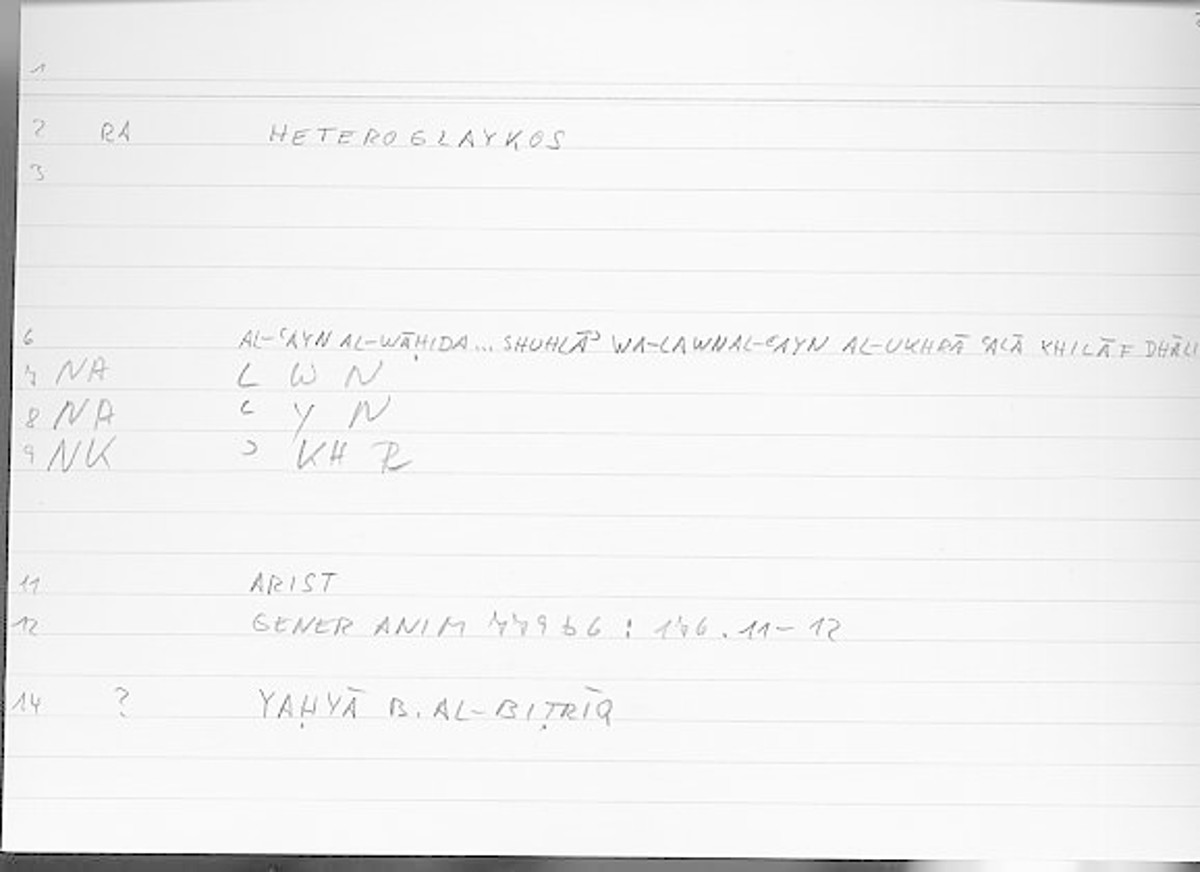 1
2 RA HETEROGLAYKOS
3
6 AL-ʿAYN AL-WĀḤIDA... SHUHLĀʾ WA-LAWNAL-ʿAYN AL-UKHRĀ ʿALĀ KHILĀF DHĀLI
7 NA L W N
8 NA ʿ Y N
9 NK ʾ KH R
11 ARIST
12 GENER ANIM 779b6 : 176.11-12
14 ? YAḤYĀ B. AL-BIṬRĪQ